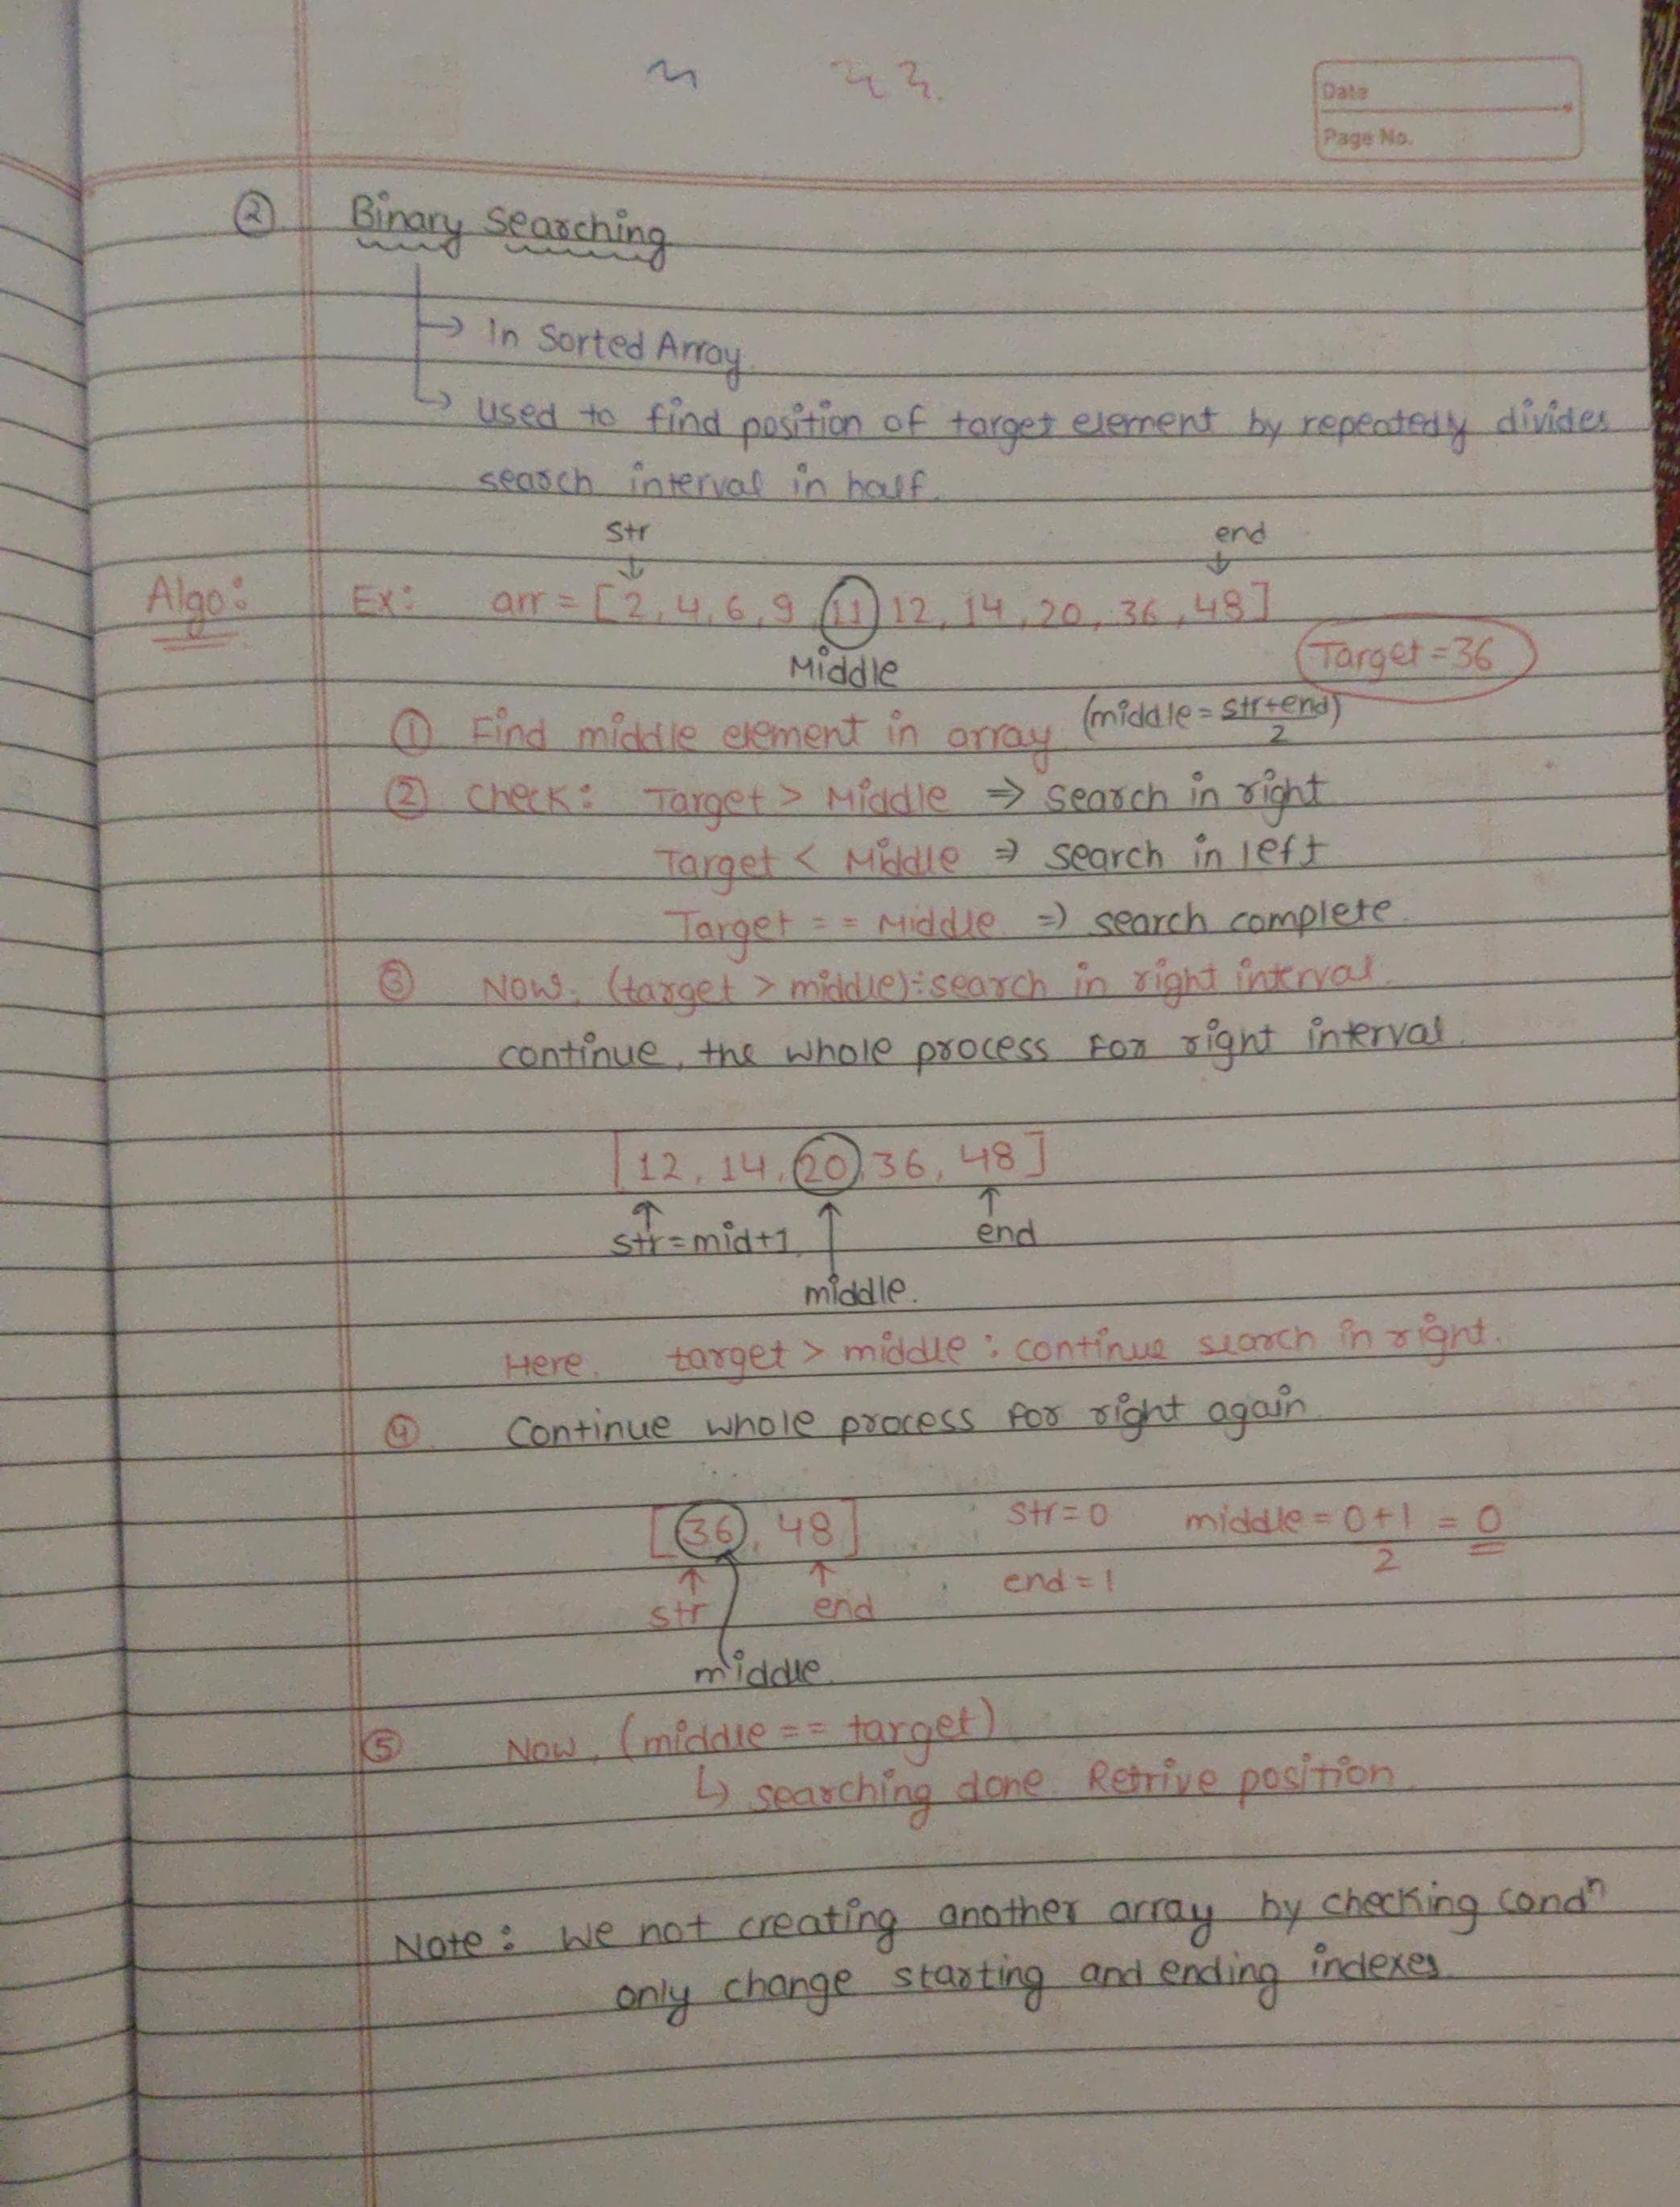 Date
Page No.
② Binary Searching
→ In Sorted Array
→ used to find position of target element by repeatedly divides
search interval in half.
str end
Algo: Ex: arr = [2, 4, 6, 9, 11, 12, 14, 20, 36, 48]
Middle Target = 36
① Find middle element in array (middle = str+end / 2)
② Check: Target > Middle ⇒ search in right
Target < Middle ⇒ search in left
Target == Middle ⇒ search complete
③ Now, (target > middle): search in right interval.
continue, the whole process for right interval.
[12, 14, 20, 36, 48]
str = mid+1 end
middle.
Here, target > middle : continue search in right.
④ Continue whole process for right again
[36, 48] str = 0 middle = 0+1 / 2 = 0
str end end = 1
middle.
⑤ Now, (middle == target)
↳ searching done. Retrive position.
Note: We not creating another array by checking condⁿ
only change starting and ending indexes